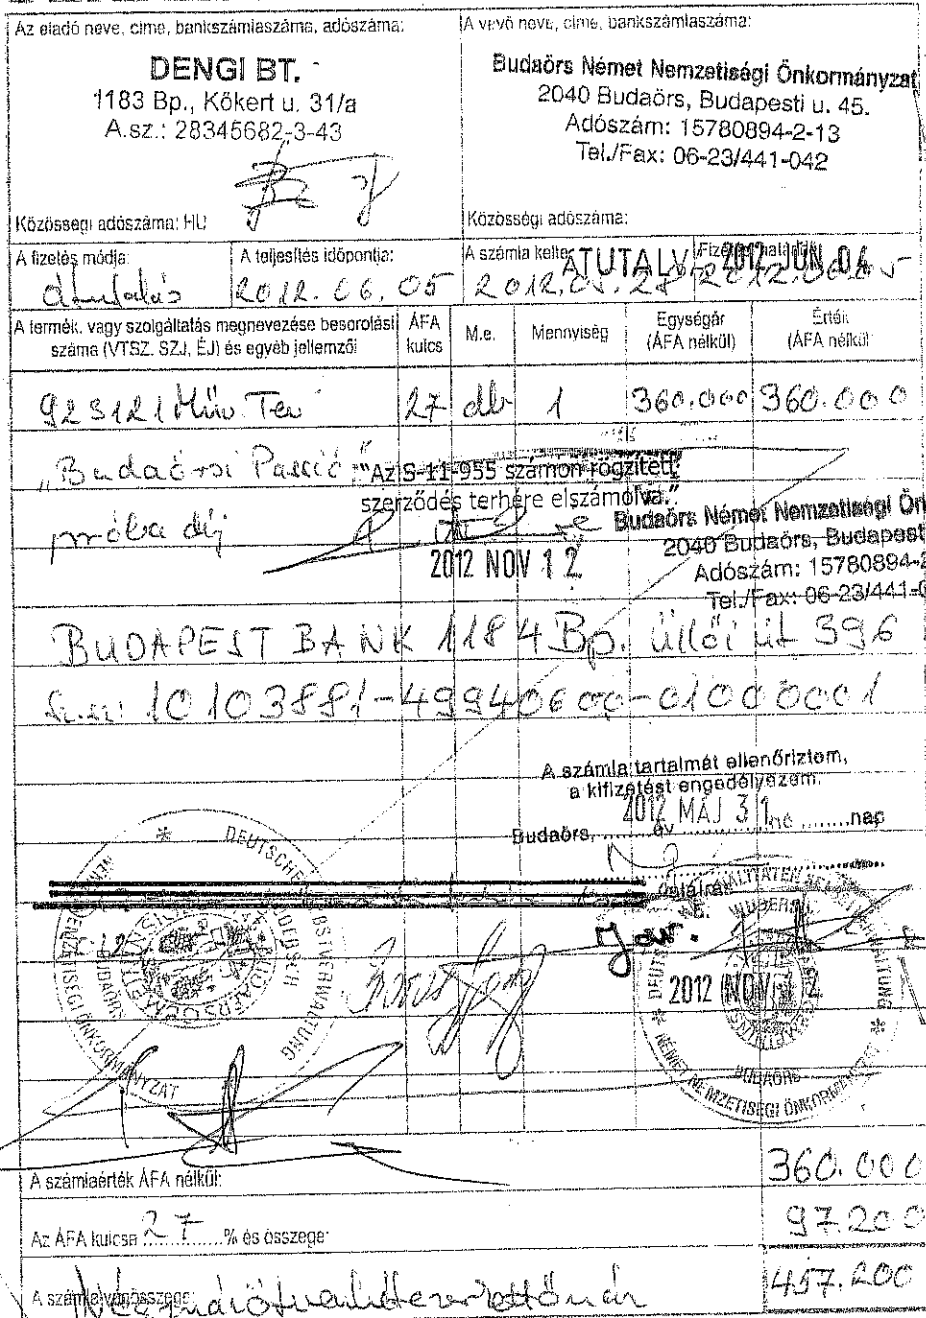 Az eladó neve, címe, bankszámlaszáma, adószáma:
DENGI BT.
1183 Bp., Kőkert u. 31/a
A.sz.: 28345682-3-43
Közösségi adószáma: HU
A vevő neve, címe, bankszámlaszáma:
Budaörs Német Nemzetiségi Önkormányzat
2040 Budaörs, Budapesti u. 45.
Adószám: 15780894-2-13
Tel./Fax: 06-23/441-042
Közösségi adószáma:
A fizetés módja:
átutalás
A teljesítés időpontja:
2012. 06. 05
A számla kelte:
2012. 05. 28
ÁTUTALVA 2012 JÚN 04
2012. 06. 05
A termék, vagy szolgáltatás megnevezése besorolási száma (VTSZ, SZJ, ÉJ) és egyéb jellemzői
ÁFA kulcs
M.e.
Mennyiség
Egységár (ÁFA nélkül)
Érték (ÁFA nélkül)
923121 Műv Tev 27 db 1 360.000 360.000
"Budaörsi Passió"
próba díj
"Az S-11-955 számon rögzített
szerződés terhére elszámolva."
2012 NOV 12.
Budaörs Német Nemzetiségi Ön
2040 Budaörs, Budapest
Adószám: 15780894-2
Tel./Fax: 06-23/441-0
BUDAPEST BANK 1184 Bp. Üllői út 396
10103881-49940600-01000001
A számla tartalmát ellenőriztem,
a kifizetést engedélyezem.
2012 MÁJ 31
Budaörs, ........ év ............. hó ........ nap
aláírás
DEUTSCHE
NÉMET NEMZETISÉGI ÖNKORMÁNYZAT
BUDAÖRS
2012 NOV 12
A számlaérték ÁFA nélkül: 360.000
Az ÁFA kulcsa 27 % és összege: 97.200
A számla végösszege: 457.200